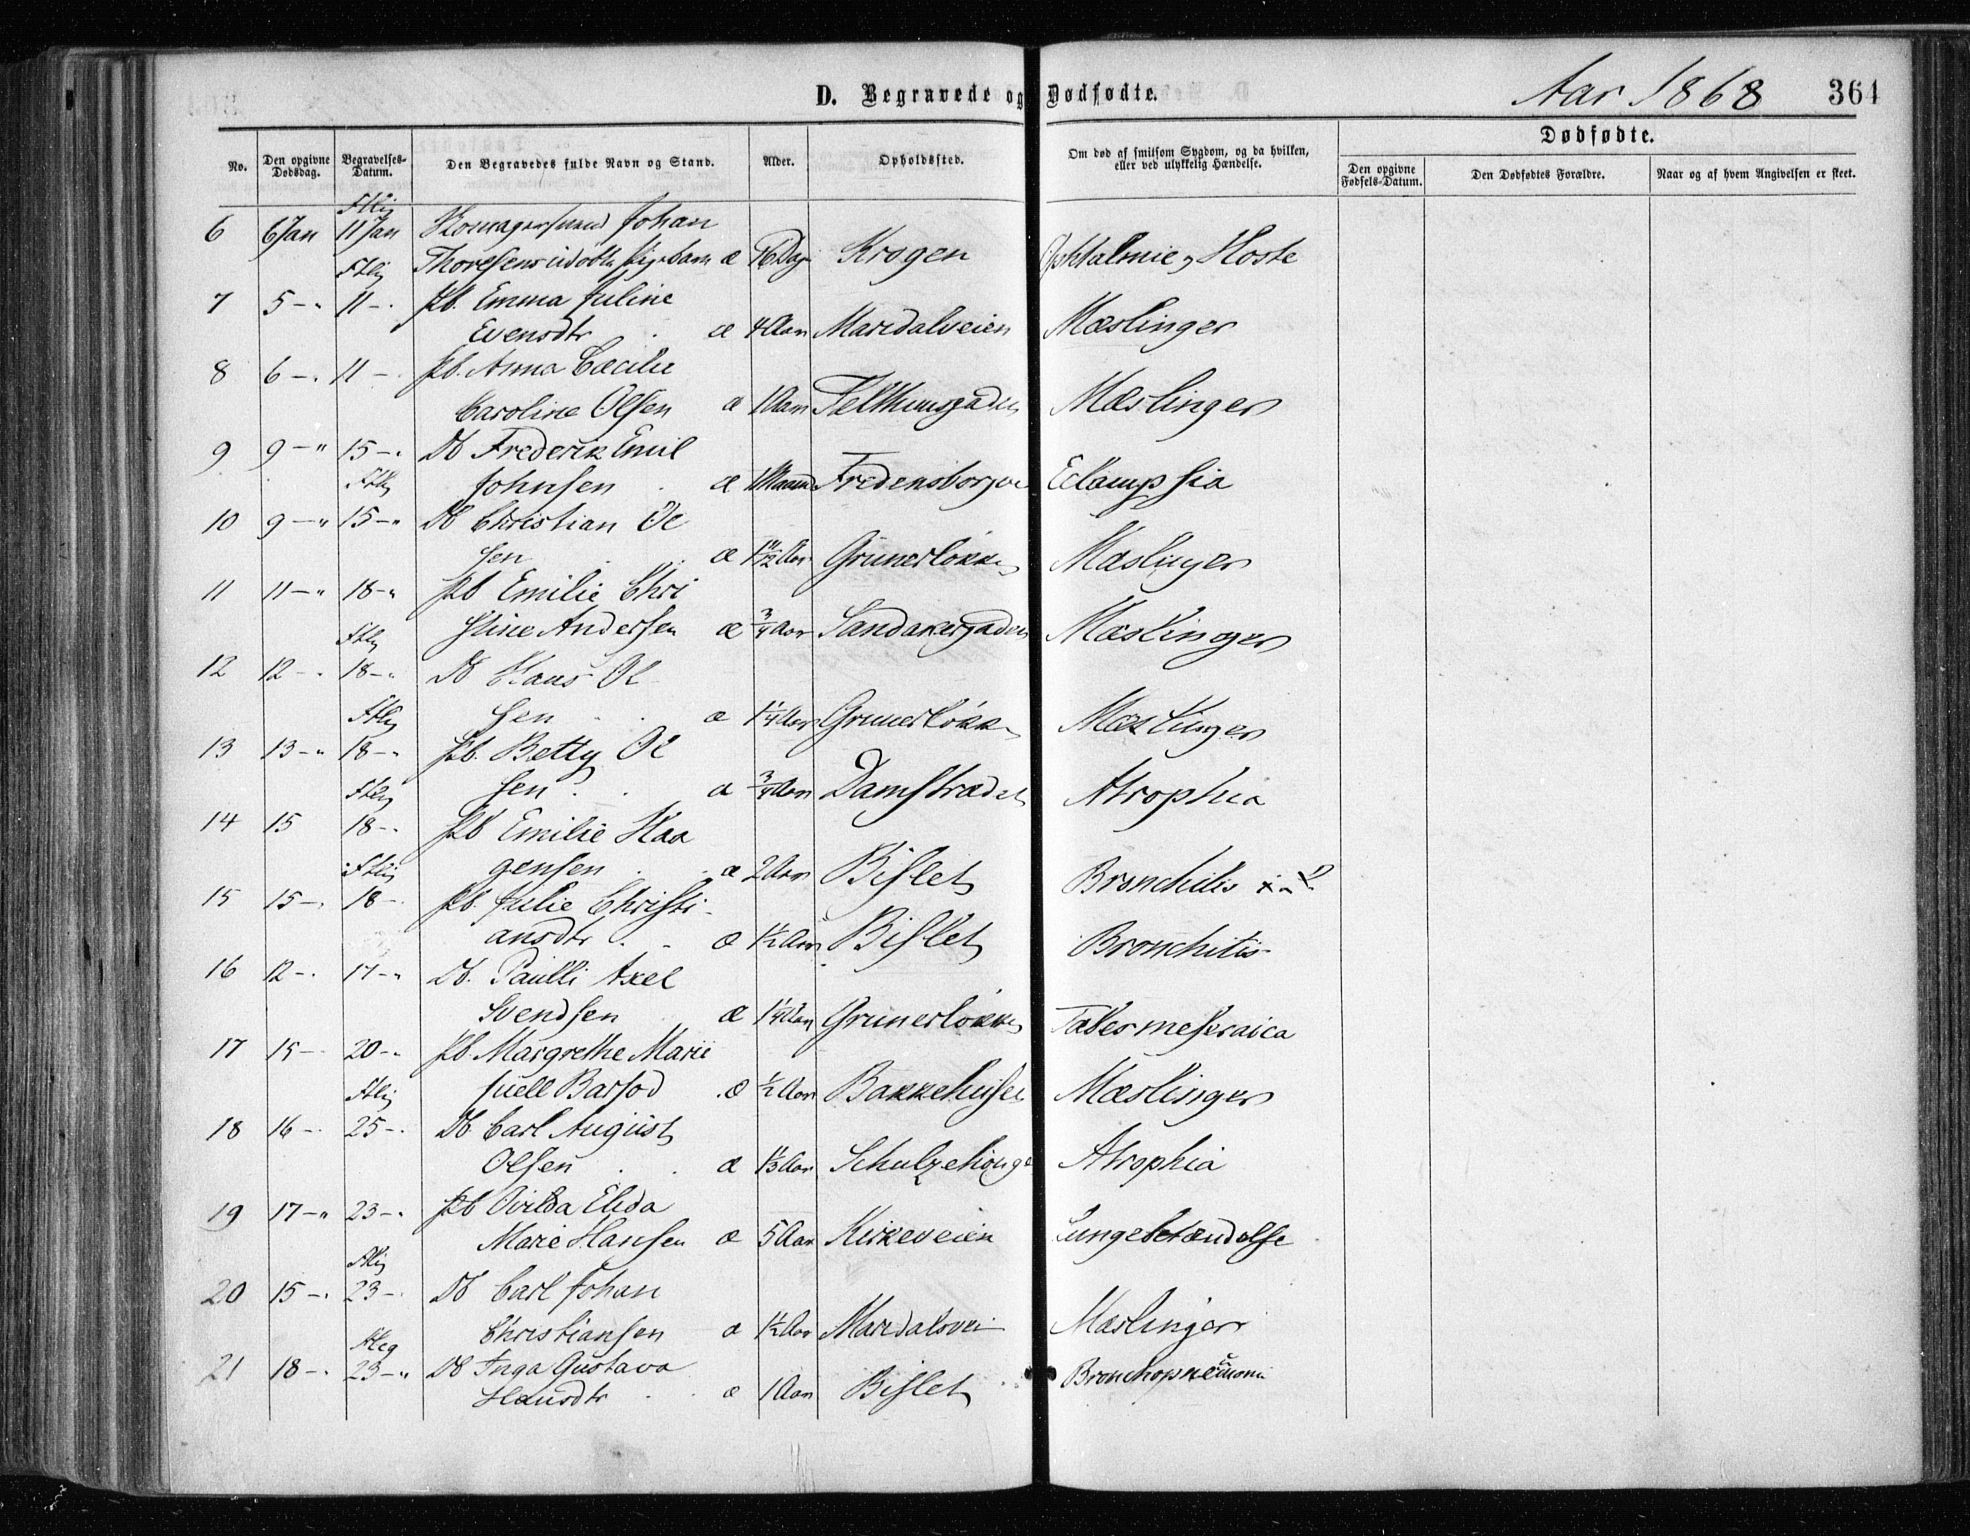 D. Begravede og Dødfødte.
Aar 1868
364
No.
Den opgivne Dødsdag.
Begravelses-Datum.
Den Begravedes fulde Navn og Stand.
Alder.
Opholdssted.
Om død af smitsom Sygdom, og da hvilken, eller ved ulykkelig Hændelse.
Dødfødte.
Den opgivne Fødsels-Datum.
Den Dødfødtes Forældre.
Naar og af hvem Angivelsen er skeet.
6 6 Jan 11 Jan Johan
Thoresens æ 16 Dag Krogen Ophtalmie og Hoste
7 5 -" 11 -. Pb. Emma Juline
Evensdtr æ 4 Aar Maridalveien Mæslinger
8 6 -. 11 -. Pb. Anna Cæcilie
Caroline Olsen æ 1 Aar Telthusgaden Mæslinger
9 9 -" 15 -. Db Frederik Emil
Johnsen æ 1 Maaned Fredensborgve Eclampsia
10 9 -" 15 -" Db Christian Ol
sen æ 1 11/12 Aar Grünerløkke Mæslinger
11 11 -" 18 -" Pb Emilie Chri
stine Andersen æ 3/4 Aar Sandakergaden Mæslinger
12 12 -. 18 -" Db Hans Ol
sen æ 1 1/4 Aar Grünerløkke Mæslinger
13 13 -" 18 -" Pb. Betty Ol
sen æ 3/4 Aar Damstrædet Atrophia
14 15 18 -. Pb Emilie Haa
gensen æ 2 Aar Bislet Bronchitis
15 15 -. 18 - Pb. Julie Christi-
ansdtr æ 1 1/2 Aar Bislet Bronchitis
16 12 -. 17 -" Db. Paulli Axel
Svendsen æ 1 1/4 Aar Grünerløkke Tabes meseraica
17 15 - 20 -. Pb. Margrethe Marie
Juell Barsod æ 1/2 Aar Bakkehuset Mæslinger
18 16 -. 25 -. Db Carl August
Olsen æ 1/3 Aar Schulzehouge Atrophia
19 17 -" 23 -. Pb Ovilda Elida
Marie Hansen æ 5 Aar Kirkeveien Lungebetændelse
20 15 -. 23 -. Db Carl Johan
Christiansen æ 1 1/2 Aar Maridalsvei Mæslinger
21 18 -. 23 -" Db Inga Gustava
Hansdtr æ 1 Aar Bislet Bronchopneumoni